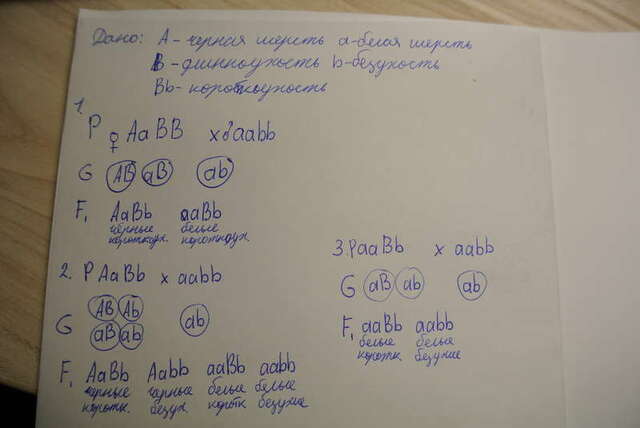 Дано: А - черная шерсть а - белая шерсть
В - длинноухость b - безухость
Bb - короткоухость
1.
P ♀ AaBB x ♂ aabb
G AB aB ab
F₁ AaBb aaBb
чёрные белые
короткоух. короткоух.
2. P AaBb x aabb
AB Ab
G aB ab ab
F₁ AaBb Aabb aaBb aabb
черные черные белые белые
коротк. безух. коротк безухие
3. P aaBb x aabb
G aB ab ab
F₁ aaBb aabb
белые белые
коротк безухие